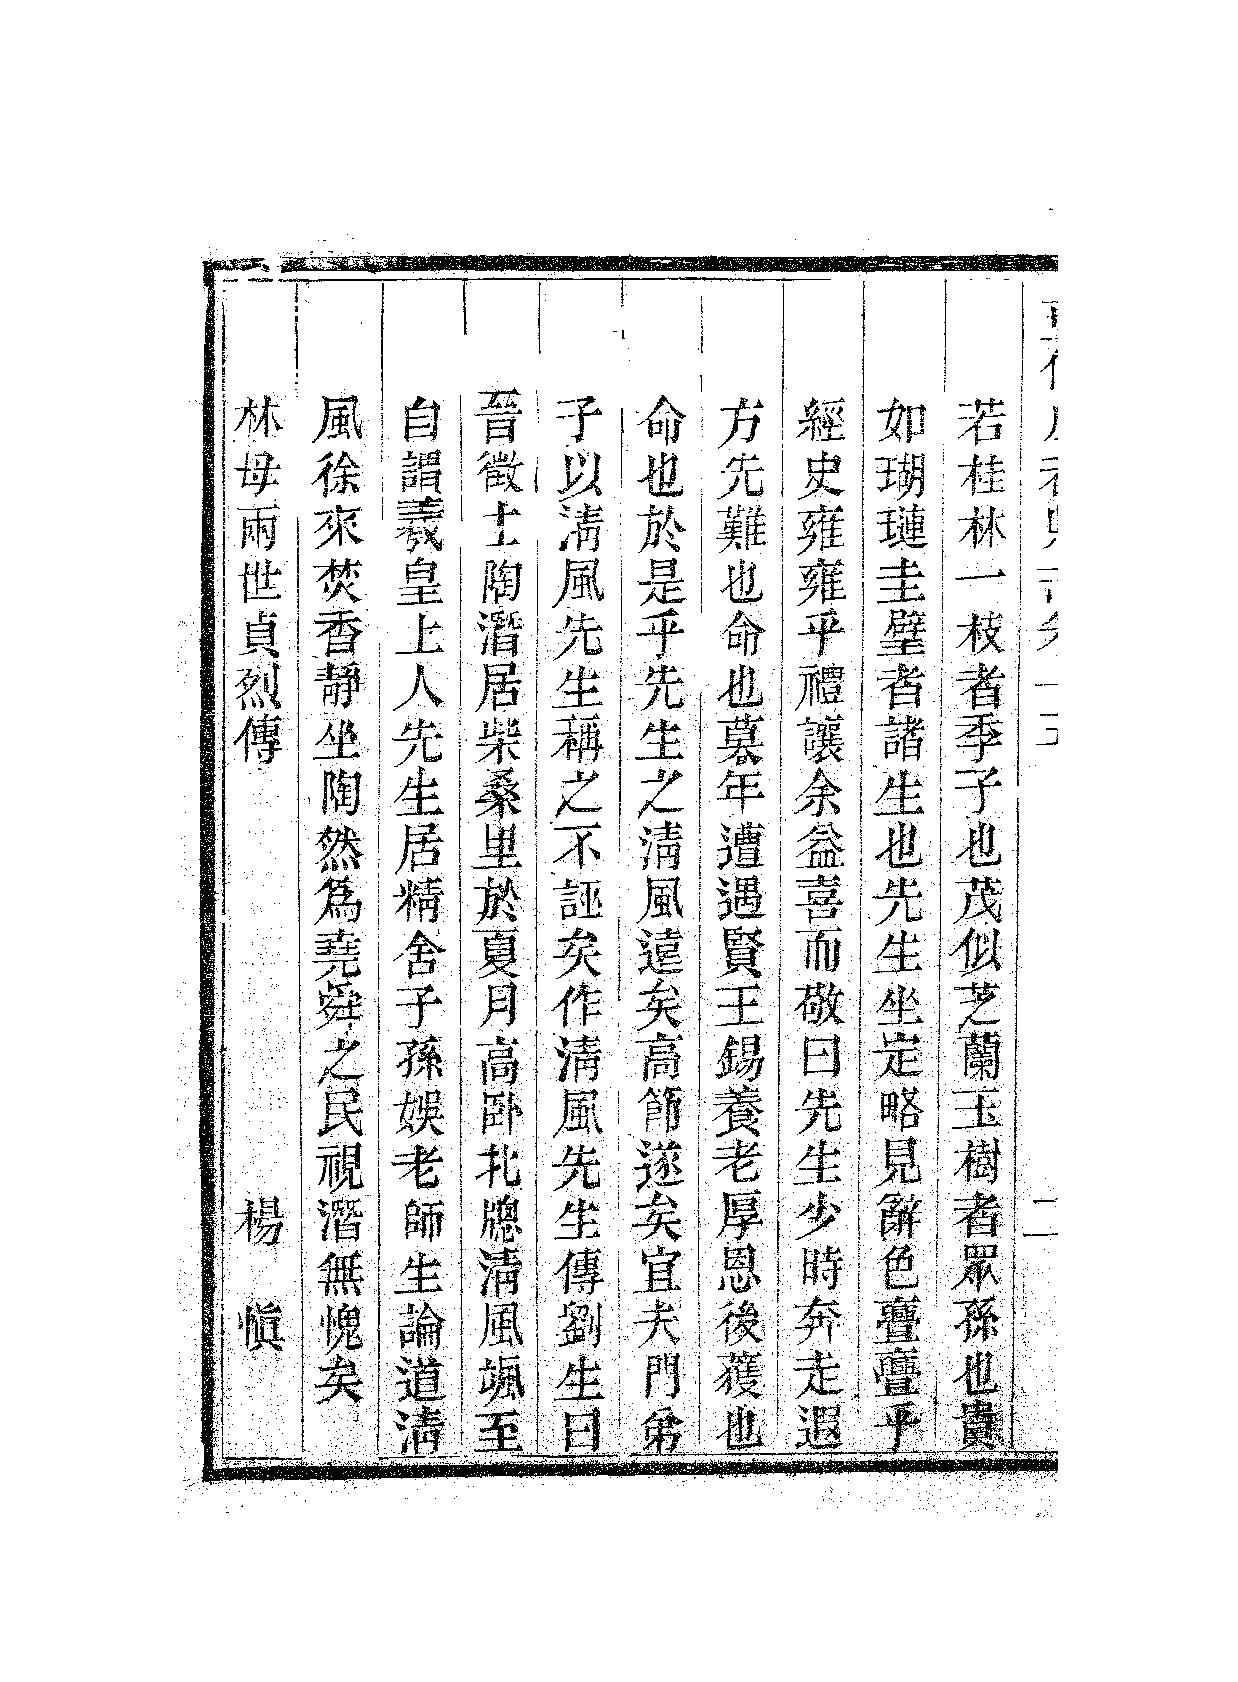 若桂林一枝者季子也茂似芝蘭玉樹者眾孫也貴
如瑚璉圭璧者諸生也先生坐定略見辭色亹亹乎
經史雍雍乎禮讓余益喜而敬曰先生少時奔走遐
方先難也命也暮年遭遇賢王錫養老厚恩後獲也
命也於是乎先生之淸風遠矣高節遂矣宜夫門弟
子以淸風先生稱之不誣矣作淸風先生傳劉生曰
晉徵士陶潛居柴桑里於夏月高卧北牕淸風颯至
自謂羲皇上人先生居精舍子孫娛老師生論道淸
風徐來焚香靜坐陶然爲堯舜之民視潛無愧矣
林母兩世貞烈傳 楊愼